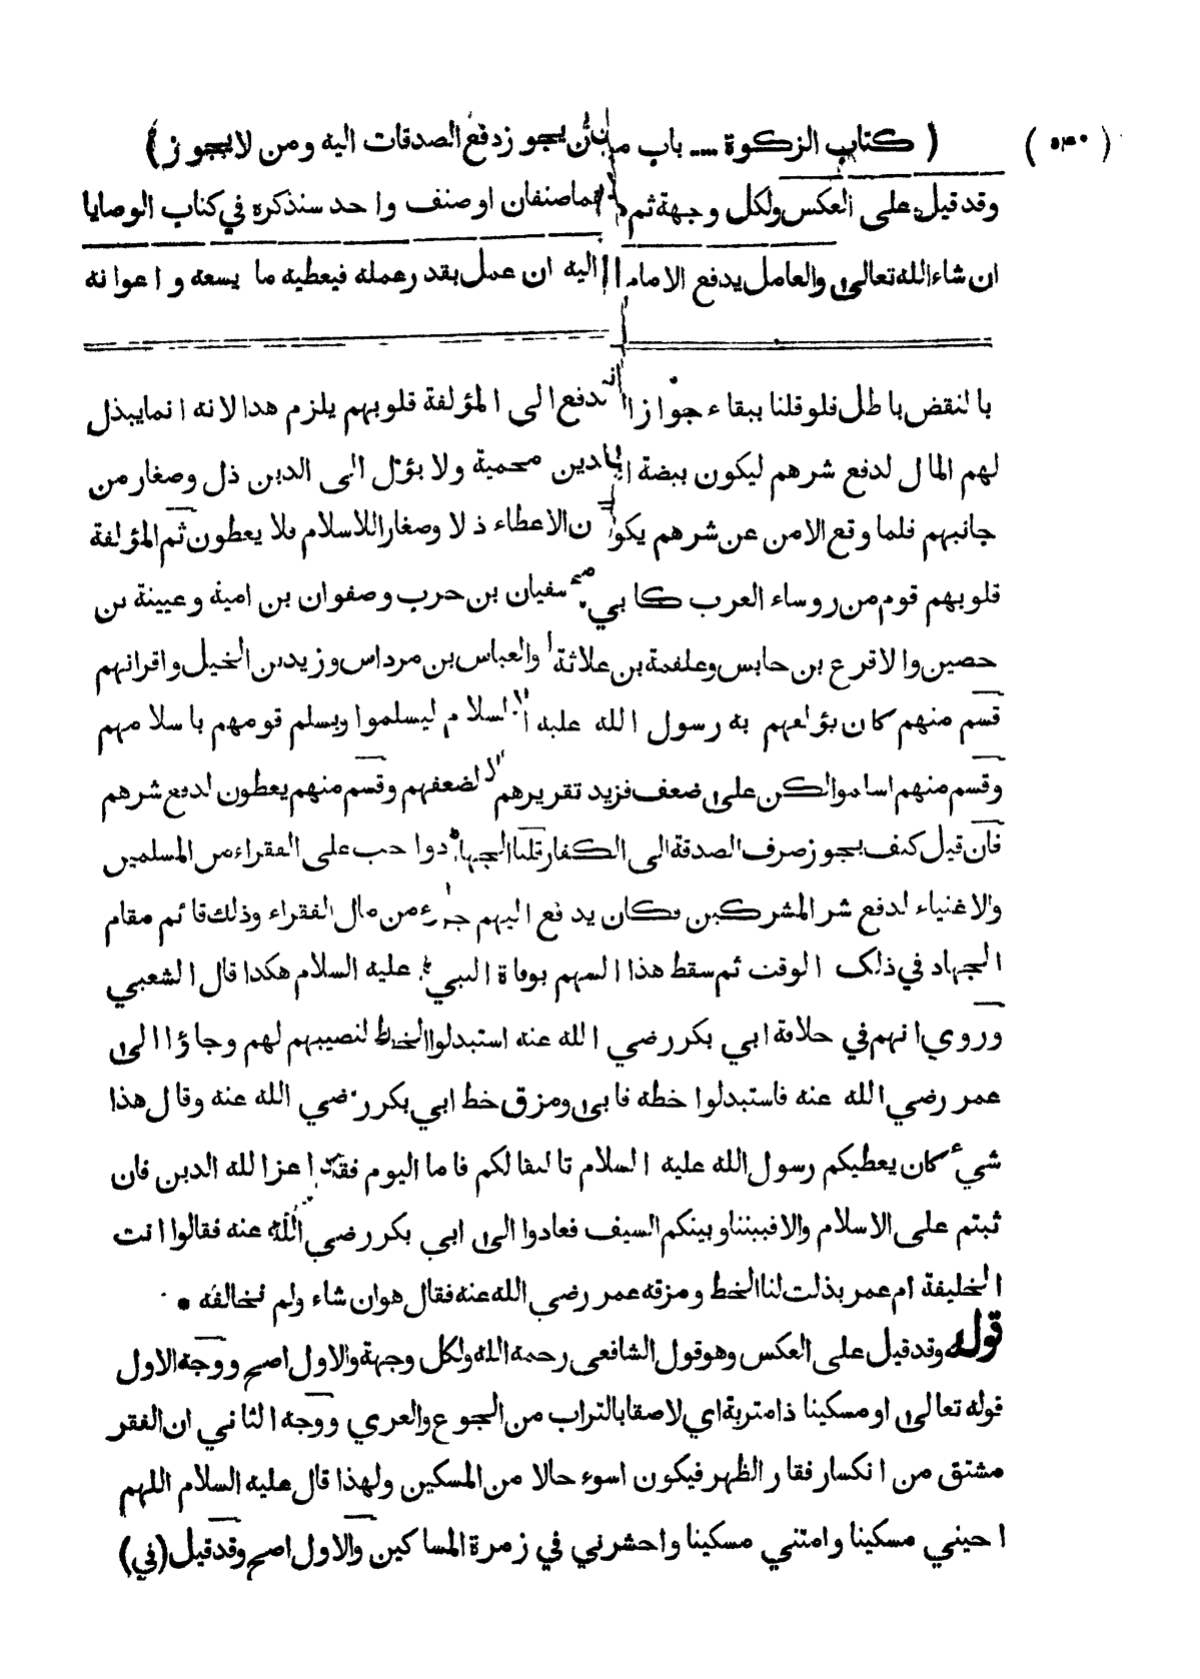 ( ٥٣٠ ) ( كتاب الزكوة ... باب من يجوز دفع الصدقات اليه ومن لا يجوز )
وقد قيل على العكس ولكل وجهة ثم هما صنفان او صنف واحد سنذكره في كتاب الوصايا
ان شاء الله تعالى والعامل يدفع الامام اليه ان عمل بقدر عمله فيعطيه ما يسعه و اعوانه
بالنقض باطل فلو قلنا ببقاء جواز الدفع الى المؤلفة قلوبهم يلزم هذا لانه انما يبذل
لهم المال لدفع شرهم ليكون بيضة الدين محمية ولا يؤل الى الدين ذل وصغار من
جانبهم فلما وقع الامن عن شرهم يكون الاعطاء ذلا وصغارا للاسلام فلا يعطون ثم المؤلفة
قلوبهم قوم من روساء العرب كابي سفيان بن حرب وصفوان بن امية وعيينة بن
حصين والاقرع بن حابس وعلقمة بن علاثة والعباس بن مرداس وزيد بن الخيل واقرانهم
قسم منهم كان يؤلفهم به رسول الله عليه السلام ليسلموا ويسلم قومهم باسلامهم
وقسم منهم اسلموا لكن على ضعف فزيد تقريرهم لضعفهم وقسم منهم يعطون لدفع شرهم
فان قيل كيف يجوز صرف الصدقة الى الكفار قلنا الجهاد واجب على الفقراء من المسلمين
والاغنياء لدفع شر المشركين فكان يدفع اليهم جزء من مال الفقراء وذلك قائم مقام
الجهاد في ذلك الوقت ثم سقط هذا السهم بوفاة النبي عليه السلام هكذا قال الشعبي
وروي انهم في خلافة ابي بكر رضي الله عنه استبدلوا الخط لنصيبهم لهم وجاؤا الى
عمر رضي الله عنه فاستبدلوا خطه فابى ومزق خط ابي بكر رضي الله عنه وقال هذا
شيء كان يعطيكم رسول الله عليه السلام تاليفا لكم فاما اليوم فقد اعز الله الدين فان
ثبتم على الاسلام والا فبيننا وبينكم السيف فعادوا الى ابي بكر رضي الله عنه فقالوا انت
الخليفة ام عمر بذلت لنا الخط ومزقه عمر رضي الله عنه فقال هو ان شاء ولم يخالفه •
قوله وقد قيل على العكس وهو قول الشافعي رحمه الله ولكل وجهة والاول اصح ووجه الاول
قوله تعالى او مسكينا ذا متربة اي لاصقا بالتراب من الجوع والعري ووجه الثاني ان الفقر
مشتق من انكسار فقار الظهر فيكون اسوء حالا من المسكين ولهذا قال عليه السلام اللهم
احيني مسكينا وامتني مسكينا واحشرني في زمرة المساكين والاول اصح وقد قيل (في)